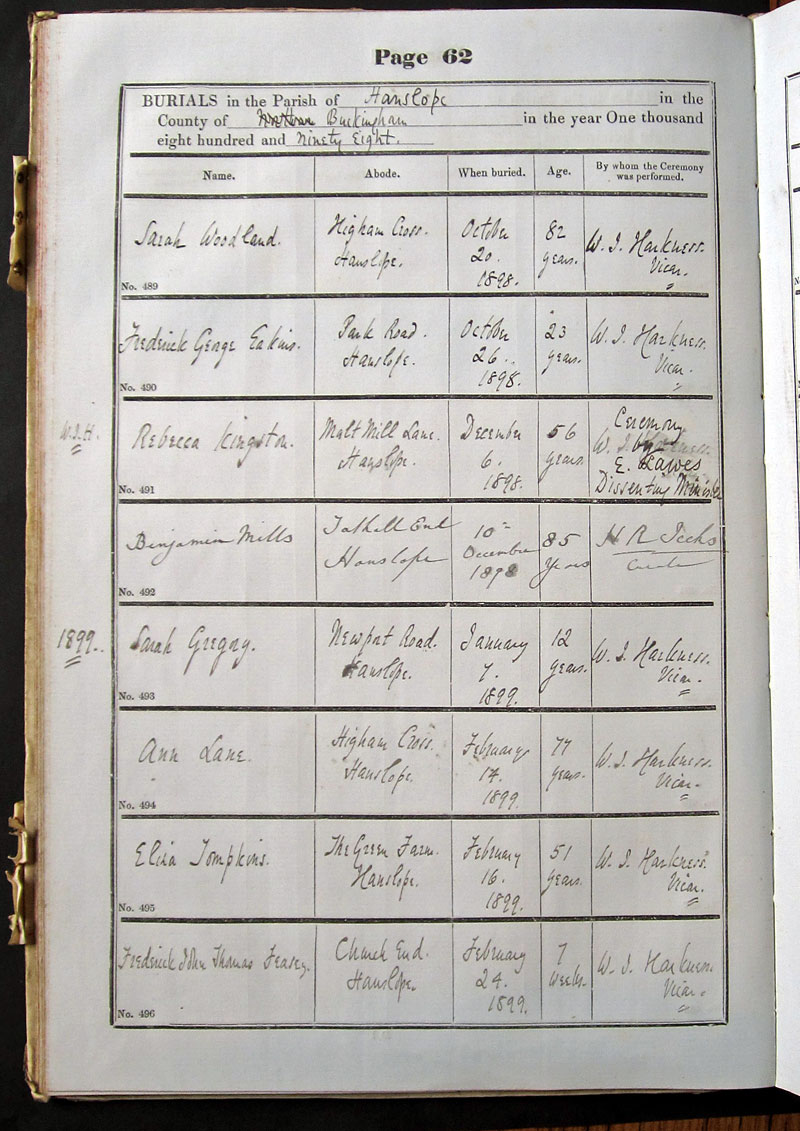 Page 62
BURIALS in the Parish of Hanslope in the
County of Buckingham in the year One thousand
eight hundred and Ninety Eight.
Name. Abode. When buried. Age. By whom the Ceremony was performed.
Sarah Woodland. Higham Cross. October 82 W. J. Harkness.
Hanslope. 20. years. Vicar.
No. 489 1898.
Frederick George Eakins. Park Road. October 23 W. J. Harkness.
Hanslope. 26. years. Vicar.
No. 490 1898.
Ceremony
W.J.H. Rebecca Kingston. Malt Mill Lane. December 56 W. J. Harkness. by
Hanslope. 6. years. E. Lawes
No. 491 1898. Dissenting Minister
Benjamin Mills Tathall End 10th 85 H R
Hanslope December Years Curate
No. 492 1898
1899. Sarah Gregory. Newport Road. January 12 W. J. Harkness.
Hanslope. 7. years. Vicar.
No. 493 1899.
Ann Lane. Higham Cross. February 77 W. J. Harkness.
Hanslope. 14. years. Vicar.
No. 494 1899.
Eliza Tompkins. The Green Farm. February 51 W. J. Harkness.
Hanslope. 16. years. Vicar.
No. 495 1899.
Frederick John Thomas Feasey. Church End. February 7 W. J. Harkness.
Hanslope. 24. weeks. Vicar.
No. 496 1899.